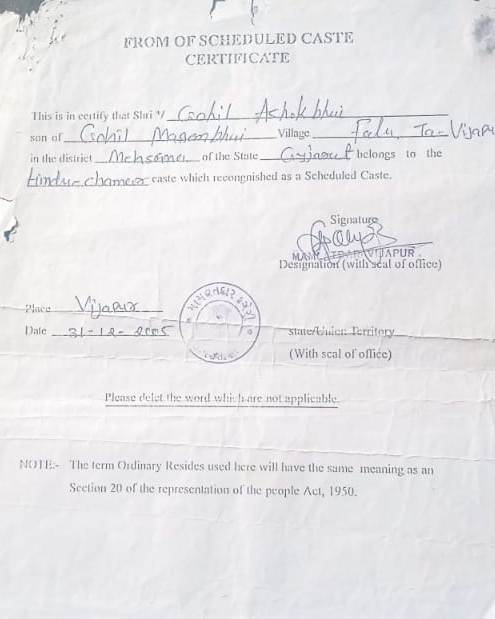 FROM OF SCHEDULED CASTE
CERTIFICATE
This is in certify that Shri */ Gohil Ashokbhai
son of Gohil Maganbhai Village Falu, Ta-Vijapur
in the district Mehsana of the State Gujarat belongs to the
Hindu-chamar caste which recongnished as a Scheduled Caste.
Signature
VIJAPUR.
Designation (with seal of office)
Place Vijapur
Date 31-12-2005
state/Union Territory
(With seal of office)
Please delet the word which are not applicable.
NOTE:- The term Ordinary Resides used here will have the same meaning as an
Section 20 of the representation of the people Act, 1950.